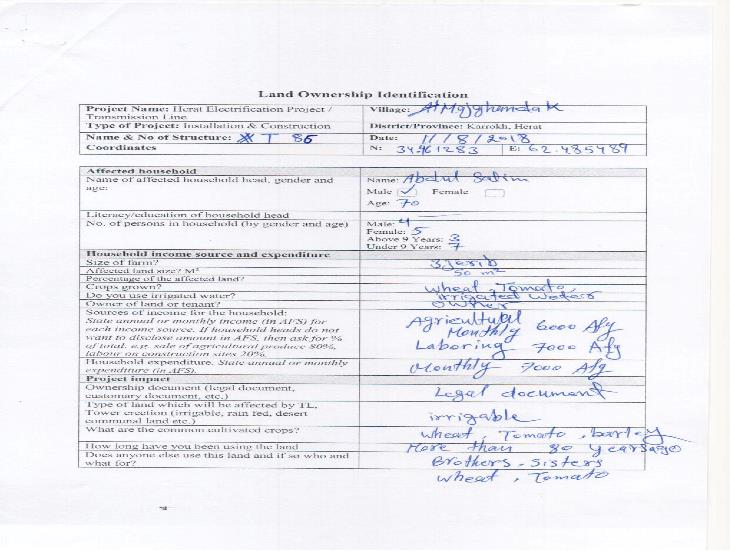 Land Ownership Identification
Project Name: Herat Electrification Project / Transmission Line
Village:
Type of Project: Installation & Construction
District/Province: Karrokh, Herat
Name & No of Structure: T 86
Date: 11/8/2018
Coordinates
N: 34.461283 E: 62.485489
Affected household
Name of affected household head, gender and age:
Name: Abdul Salim
Male ✓ Female
Age: 70
Literacy/education of household head
No. of persons in household (by gender and age)
Male: 4
Female: 5
Above 9 Years: 3
Under 9 Years: 7
Household income source and expenditure
Size of farm?
3 Jerib
Affected land size? M²
50 m²
Percentage of the affected land?
Crops grown?
wheat, Tomato,
Do you use irrigated water?
irrigated waters
Owner of land or tenant?
owner
Sources of income for the household:
State annual or monthly income (in AFS) for
each income source. If household heads do not
want to disclose amount in AFS, then ask for %
of total. e.g. sale of agricultural produce 80%,
labour on construction sites 20%.
Agricultural
Monthly 6000 Afg
Laboring 7000 Afg
Household expenditure. State annual or monthly
expenditure (in AFS).
Monthly 7000 Afg
Project impact
Ownership document (legal document,
customary document, etc.)
Legal document
Type of land which will be affected by TL,
Tower erection (irrigable, rain fed, desert
communal land etc.)
irrigable
What are the common cultivated crops?
wheat, Tomato, barley
How long have you been using the land
More than 80 years ago
Does anyone else use this land and if so who and
what for?
Brothers, Sisters
wheat, Tomato